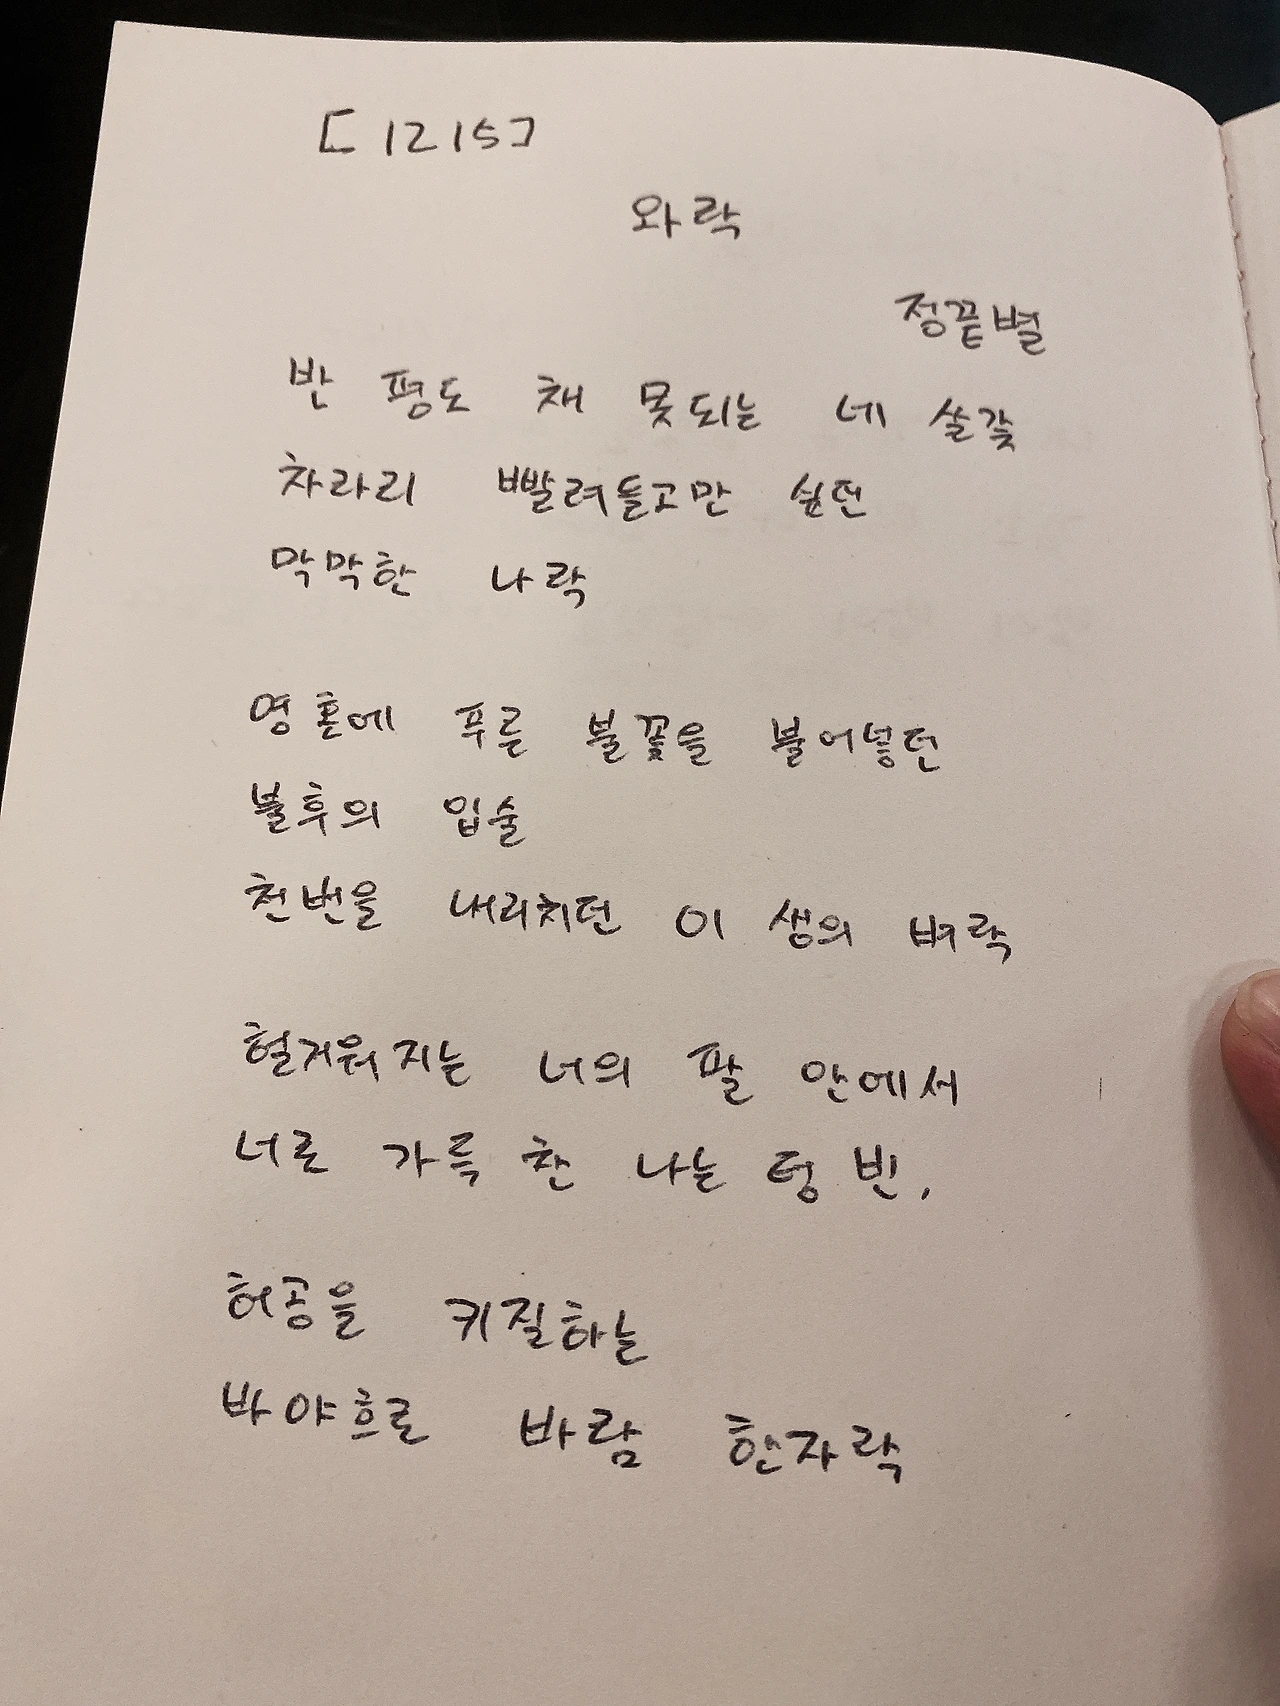 [1215]
와락
정끝별
반 평도 채 못되는 네 살갗
차라리 빨려들고만 싶던
막막한 나락
영혼에 푸른 불꽃을 불어넣던
불후의 입술
천번을 내리치던 이 생의 벼락
헐거워지는 너의 팔 안에서
너로 가득 찬 나는 텅 빈,
허공을 키질하는
바야흐로 바람 한자락